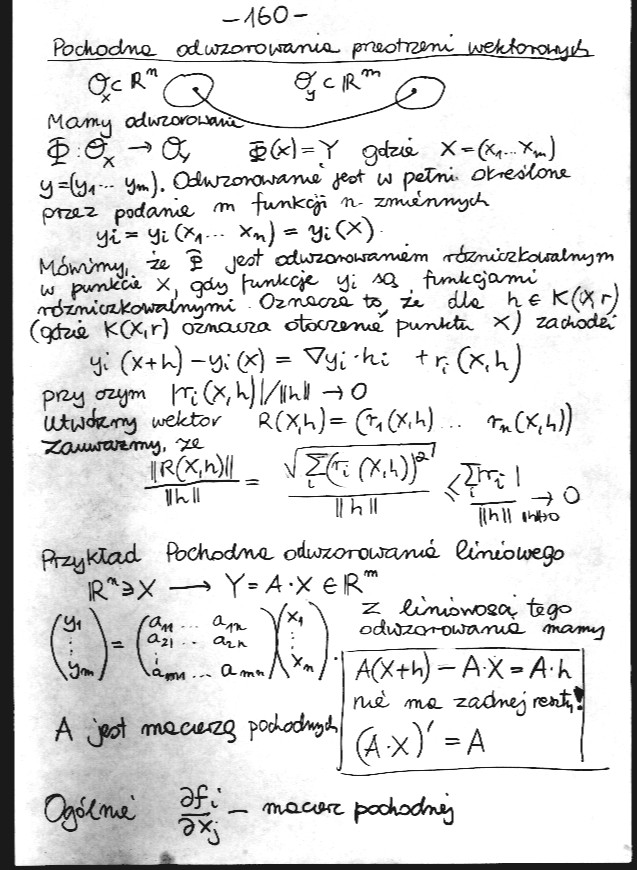 -160-
Pochodna odwzorowania przestrzeni wektorowych
O_x ⊂ R^n O_y ⊂ R^m
Mamy odwzorowanie
Φ : O_x → O_y Φ(x) = Y gdzie X = (x_1 ... x_m)
y = (y_1 ... y_m). Odwzorowanie jest w pełni określone
przez podanie m funkcji n zmiennych
y_i = y_i (x_1 ... x_n) = y_i (X).
Mówimy, że Φ jest odwzorowaniem różniczkowalnym
w punkcie X, gdy funkcje y_i są funkcjami
różniczkowalnymi. Oznacza to, że dla h ∈ K(X,r)
(gdzie K(X,r) oznacza otoczenie punktu X) zachodzi
y_i (x+h) - y_i (x) = ∇y_i · h_i + r_i (X,h)
przy czym |r_i (X,h)|/||h|| → 0
Utwórzmy wektor R(X,h) = (r_1(X,h) ... r_n(X,h))
Zauważmy, że
||R(X,h)|| / ||h|| = √(∑_i (r_i (X,h))^2) / ||h|| ≤ ∑_i |r_i| / ||h|| → 0 ||h||→0
Przykład Pochodna odwzorowania liniowego
R^n ∋ X → Y = A · X ∈ R^m
(y_1 ⋮ y_m) = (a_11 ... a_1n a_21 ... a_2n ⋮ a_m1 ... a_mn) (x_1 ⋮ x_n).
Z liniowości tego
odwzorowania mamy
A(X+h) - A·X = A·h
nie ma żadnej reszty!
(A·X)' = A
A jest macierzą pochodnych
Ogólnie ∂f_i/∂x_j - macierz pochodnej